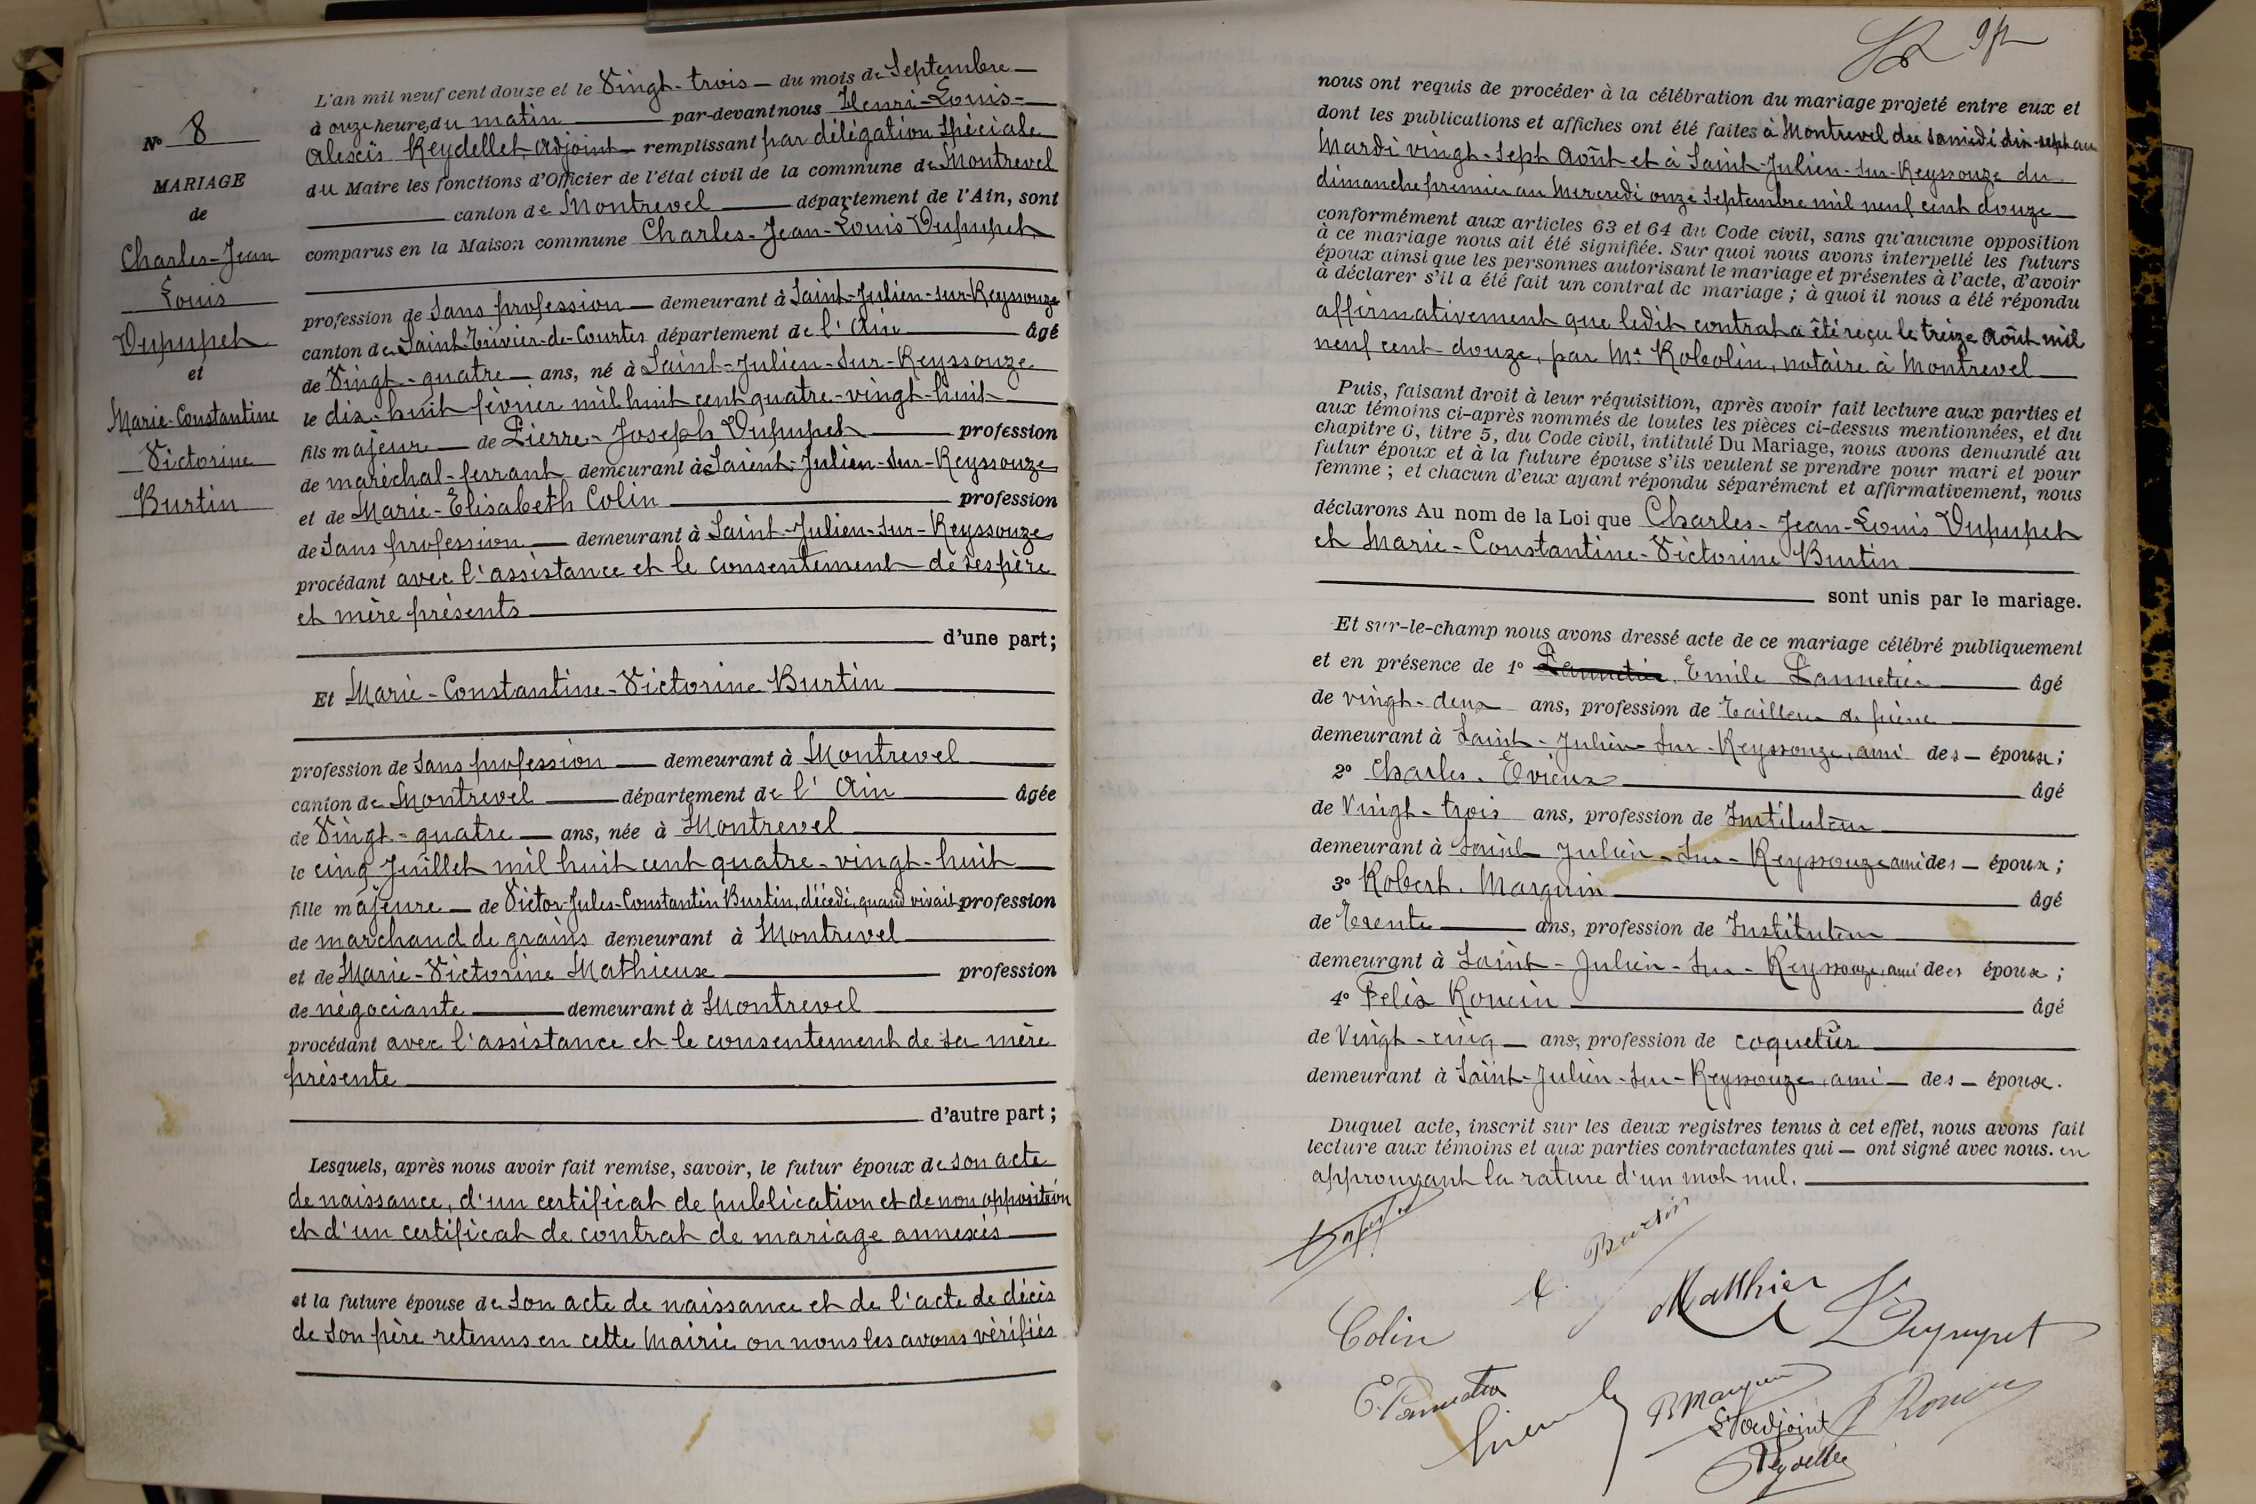 N° 8
MARIAGE
de
Charles-Jean
Louis
Dupupet
et
Marie-Constantine
Victorine
Burtin
L'an mil neuf cent douze et le Vingt-trois du mois de Septembre
à onze heures du matin par-devant nous Henri-Louis-
Alexis Reydellet, adjoint remplissant par délégation spéciale
du Maire les fonctions d'Officier de l'état civil de la commune de Montrevel
canton de Montrevel département de l'Ain, sont
comparus en la Maison commune Charles-Jean-Louis Dupupet
profession de sans profession demeurant à Saint-Julien-sur-Reyssouze
canton de Saint-Trivier-de-Courtes département de l'Ain âgé
de Vingt-quatre ans, né à Saint-Julien-sur-Reyssouze
le dix-huit février mil huit cent quatre-vingt-huit
fils majeur de Pierre-Joseph Dupupet profession
de maréchal-ferrant demeurant à Saint-Julien-sur-Reyssouze
et de Marie-Elisabeth Colin profession
de sans profession demeurant à Saint-Julien-sur-Reyssouze
procédant avec l'assistance et le consentement de ses père
et mère présents
d'une part;
Et Marie-Constantine-Victorine Burtin
profession de sans profession demeurant à Montrevel
canton de Montrevel département de l'Ain âgée
de Vingt-quatre ans, née à Montrevel
le cinq Juillet mil huit cent quatre-vingt-huit
fille majeure de Victor-Jules-Constantin Burtin, décédé, quand vivait profession
de marchand de grains demeurant à Montrevel
et de Marie-Victorine Mathieux profession
de négociante demeurant à Montrevel
procédant avec l'assistance et le consentement de sa mère
présente
d'autre part;
Lesquels, après nous avoir fait remise, savoir, le futur époux de son acte
de naissance, d'un certificat de publication et de non opposition
et d'un certificat de contrat de mariage annexés
et la future épouse de son acte de naissance et de l'acte de décès
de son père retenus en cette Mairie où nous les avons vérifiés
nous ont requis de procéder à la célébration du mariage projeté entre eux et
dont les publications et affiches ont été faites à Montrevel du samedi dix-sept au
Mardi vingt-sept Août et à Saint-Julien-sur-Reyssouze du
dimanche premier au Mercredi onze Septembre mil neuf cent douze
conformément aux articles 63 et 64 du Code civil, sans qu'aucune opposition
à ce mariage nous ait été signifiée. Sur quoi nous avons interpellé les futurs
époux ainsi que les personnes autorisant le mariage et présentes à l'acte, d'avoir
à déclarer s'il a été fait un contrat de mariage; à quoi il nous a été répondu
affirmativement que ledit contrat a été reçu le treize Août mil
neuf cent-douze, par Me Robolin, notaire à Montrevel
Puis, faisant droit à leur réquisition, après avoir fait lecture aux parties et
aux témoins ci-après nommés de toutes les pièces ci-dessus mentionnées, et du
chapitre 6, titre 5, du Code civil, intitulé Du Mariage, nous avons demandé au
futur époux et à la future épouse s'ils veulent se prendre pour mari et pour
femme; et chacun d'eux ayant répondu séparément et affirmativement, nous
déclarons Au nom de la Loi que Charles-Jean-Louis Dupupet
et Marie-Constantine-Victorine Burtin
sont unis par le mariage.
Et sur-le-champ nous avons dressé acte de ce mariage célébré publiquement
et en présence de 1° Pannetier, Emile Pannetier âgé
de vingt-deux ans, profession de Tailleur de pierre
demeurant à Saint-Julien-sur-Reyssouze, ami des époux;
2° Charles Evieux âgé
de Vingt-trois ans, profession de Instituteur
demeurant à Saint Julien-sur-Reyssouze ami des époux;
3° Robert Marguin âgé
de Trente ans, profession de Instituteur
demeurant à Saint-Julien-sur-Reyssouze, ami des époux;
4° Felix Roncin âgé
de Vingt-cinq ans, profession de coquetier
demeurant à Saint-Julien-sur-Reyssouze, ami des époux.
Duquel acte, inscrit sur les deux registres tenus à cet effet, nous avons fait
lecture aux témoins et aux parties contractantes qui ont signé avec nous. en
approuvant la rature d'un mot nul.
Burtin
Matthieu
Colin
Dupupet
E. Pannetier
R Marguin
F Roncin
L'adjoint
Reydellet